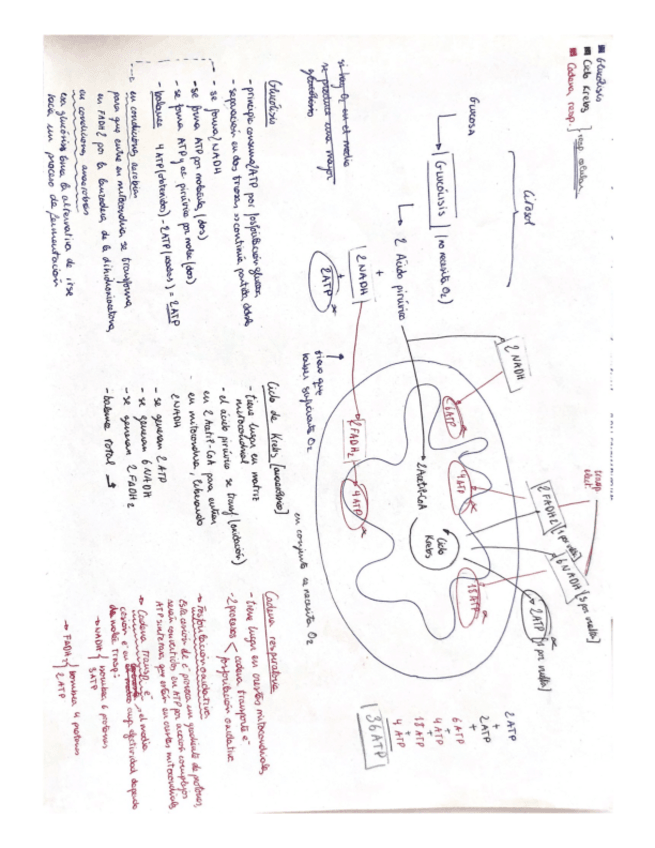 Glucólisis
Ciclo Krebs
Cadena resp.
resp. celular
Citosol
Glucosa
GLUCÓLISIS (no necesita O₂)
2 Ácido pirúvico
+
2 NADH
+
2 ATP
si hay O₂ en el medio
se produce una mayor
2 NADH
6 ATP
2 Acetil-CoA
Ciclo
Krebs
2 FADH₂
4 ATP
4 ATP
18 ATP
transp.
2 FADH2 (1 por vuelta)
6 NADH (3 por vuelta)
2 ATP (1 por vuelta)
tiene que
haber suficiente O₂
en conjunto se necesita O₂
2 ATP
+
2 ATP
+
6 ATP
+
4 ATP
+
18 ATP
+
4 ATP
36 ATP
Glucólisis
- principio consume 2 ATP por fosforilación glucosa
- separación en dos triosas, continúa partida doble
- se forma 2 NADH
- se forma ATP por molécula (dos)
- se forma ATP y ac pirúvico por molec (dos)
- balance 4 ATP (obtenidos) - 2 ATP (usados) = 2 ATP
en condiciones aerobias
para que entre en mitocondria se transforma
en FADH2 por la lanzadera de la dihidroxiacetona
en condiciones anaerobias
la alternativa de irse
hacia un proceso de fermentación
Ciclo de Krebs
- tiene lugar en matriz
mitocondrial
- el ácido pirúvico se transf (oxidación)
en 2 Acetil-CoA para entrar
en mitocondria, liberando
2 NADH
- se generan 2 ATP
- se generan 6 NADH
- se generan 2 FADH2
- balance total
Cadena respiratoria
- tiene lugar en crestas mitocondriales
- 2 procesos < cadena transporte e⁻
fosforilación oxidativa
→ fosforilación oxidativa
Esta cesión de e⁻ provoca un gradiente de protones,
serán convertidos en ATP por acción complejos
ATP sintetasa que están en crestas mitocondriales
→ Cadena transp. e⁻
cuya efectividad depende
de molec transp:
→ NADH { bombea 6 protones
3 ATP
→ FADH₂ { bombea 4 protones
2 ATP